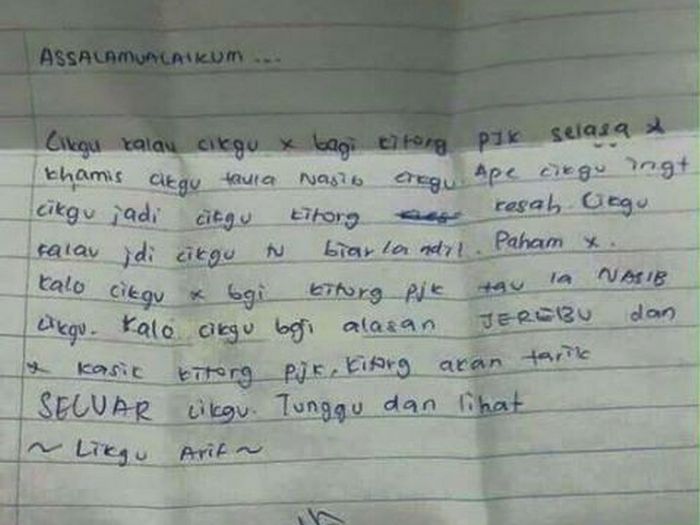 ASSALAMUALAIKUM ...
Cikgu kalau cikgu x bagi kitorg PJK selasa x
khamis cikgu taula Nasib cikgu. Ape cikgu ingt
cikgu jadi cikgu kitorg kesah. Cikgu
kalau jdi cikgu tu biar la adil. Paham x.
kalo cikgu x bgi kitorg PJK tau la NASIB
cikgu. Kalo cikgu bgi alasan JEREBU dan
x kasik kitorg pjk, kitorg akan tarik
SELUAR cikgu. Tunggu dan lihat
~ Cikgu Arif ~